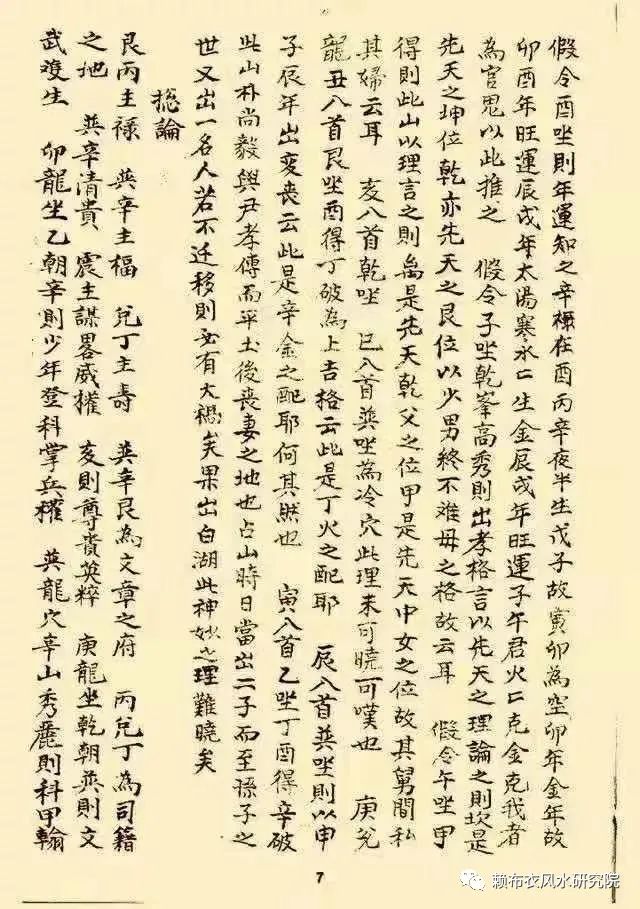 假令酉坐則年運知之辛櫃在酉丙辛夜半生戊子故寅卯為空卯年金年故
卯酉年旺運辰戌年太陽寒水匕生金辰戌年旺運子午君火匕克金克我者
為官鬼以此推之 假令子坐乾峯高秀則出孝格言以先天之理論之則坎是
先天之坤位乾亦先天之艮位以少男終不难母之格故云耳 假令午坐甲
得則此山以理言之則离是先天乾父之位甲是先天中女之位故其舅間私
其婦云耳 亥入首乾坐 巳入首巽坐為冷穴此理未可曉可嘆也 庚兌
龍丑入首艮坐酉得丁破為上吉格云此是丁火之配耶 辰入首巽坐則以申
子辰年出变喪云此是辛金之配耶何其然也 寅入首乙坐丁酉得辛破
此山朴尚毅與尹孝傳而平土後喪妻之地也占山時日當出二子而至孫子之
世又出一名人若不迁移則必有大禍矣果出白湖此神妙之理難曉矣
捴論
艮丙主禄 巽辛主福 兌丁主壽 巽辛艮為文章之府 丙兌丁為司籍
之地 巽辛清貴 震主謀畧威權 亥則尊貴英粹 庚龍坐乾朝巽則文
武竣生 卯龍坐乙朝辛則少年登科掌兵權 巽龍穴辛山秀麗則科甲翰
7
赖布衣风水研究院